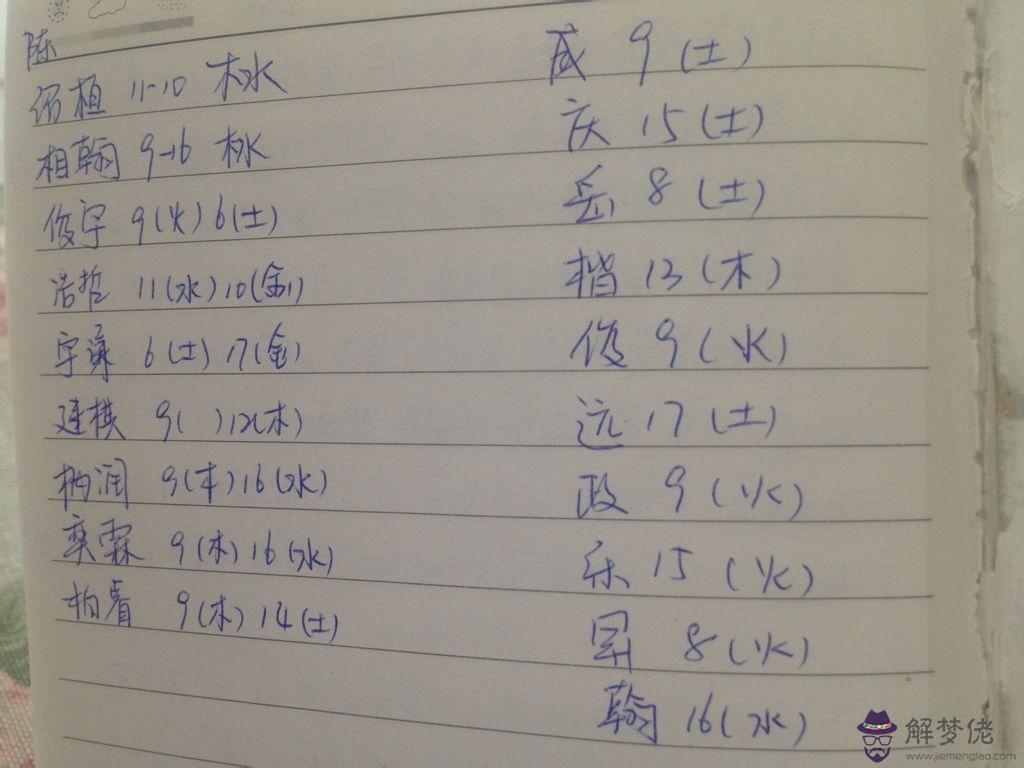 陈
绍植 11-10 木水
相翰 9-16 木水
俊宇 9(火)6(土)
浩哲 11(水)10(金)
宇谦 6(土)17(金)
建棋 9( )12(木)
柏润 9(木)16(水)
奕霖 9(木)16(水)
柏睿 9(木)14(土)
威 9(土)
庆 15(土)
岳 8(土)
楷 13(木)
俊 9(火)
远 17(土)
政 9(火)
乐 15(火)
昇 8(火)
翰 16(水)
解梦佬
www.jiemenglao.com